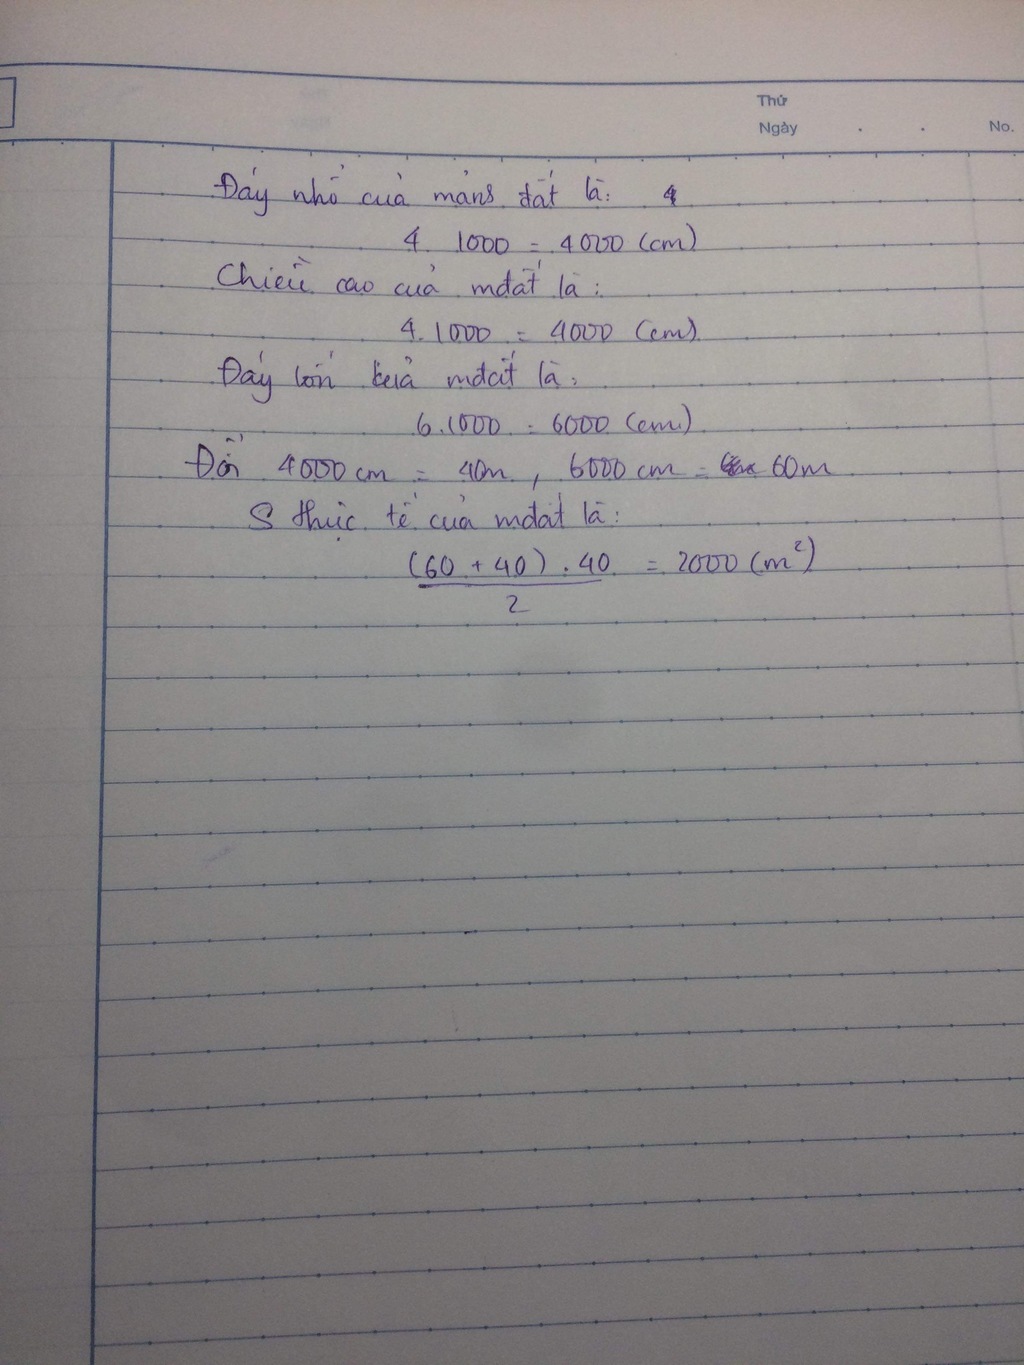 Thứ
Ngày . . No.
Đáy nhỏ của mảnh đất là: 4
4. 1000 = 4000 (cm)
Chiều cao của mđất là:
4.1000 = 4000 (cm)
Đáy lớn của mđất là:
6.1000 = 6000 (cm)
Đổi 4000 cm = 40m, 6000 cm = 60m
S thực tế của mđất là:
(60 + 40) . 40 = 2000 (m²)
2